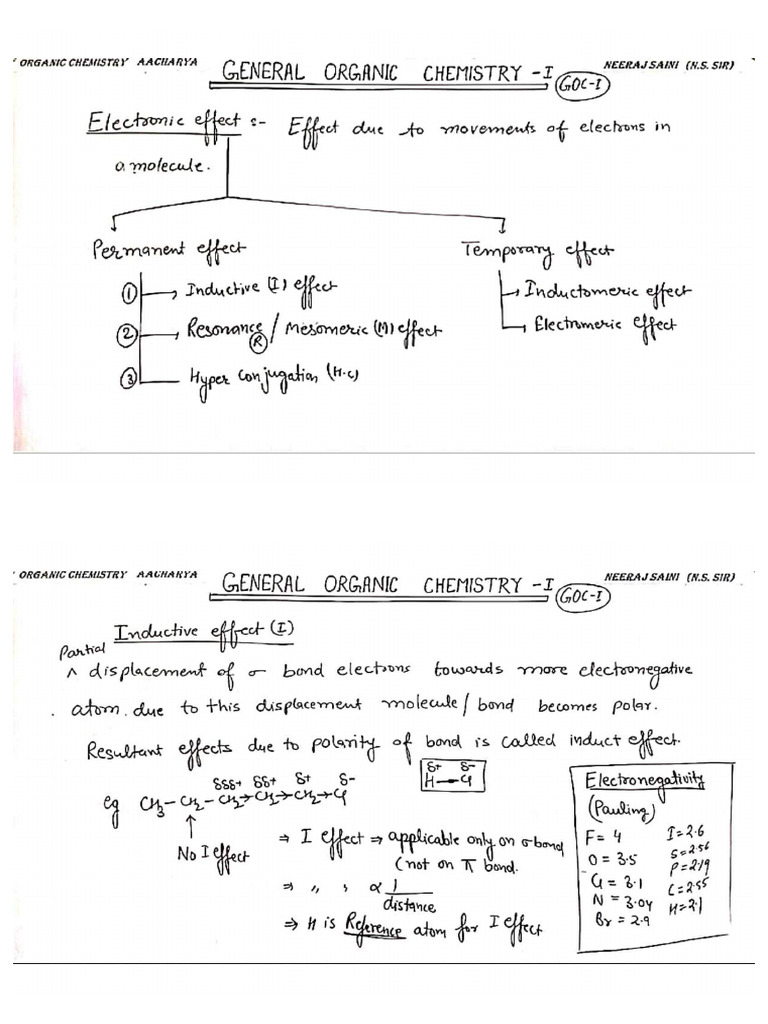 ORGANIC CHEMISTRY AACHARYA
GENERAL ORGANIC CHEMISTRY -I
GOC-I
NEERAJ SAINI (N.S. SIR)
Electronic effect :- Effect due to movements of electrons in
a molecule.
Permanent effect
Temporary effect
① Inductive (I) effect
② Resonance / Mesomeric (M) effect
R
③ Hyper conjugation (H.C)
Inductomeric effect
Electromeric effect
ORGANIC CHEMISTRY AACHARYA
GENERAL ORGANIC CHEMISTRY -I
GOC-I
NEERAJ SAINI (N.S. SIR)
Inductive effect (I)
Partial
^ displacement of σ bond electrons towards more electronegative
. atom. due to this displacement molecule/ bond becomes polar.
Resultant effects due to polarity of bond is called induct effect.
δ+ δ-
H—Cl
δδδ+ δδ+ δ+ δ-
eg CH3-CH2-CH2→CH2→CH2→Cl
↑
No I effect
⇒ I effect ⇒ applicable only on σ bond
(not on π bond.
⇒ „ , ∝ 1
distance
⇒ H is Reference atom for I effect
Electronegativity
(Pauling)
F = 4
O = 3.5
Cl = 3.1
N = 3.04
Br = 2.9
I = 2.6
S = 2.56
P = 2.19
C = 2.55
H = 2.1